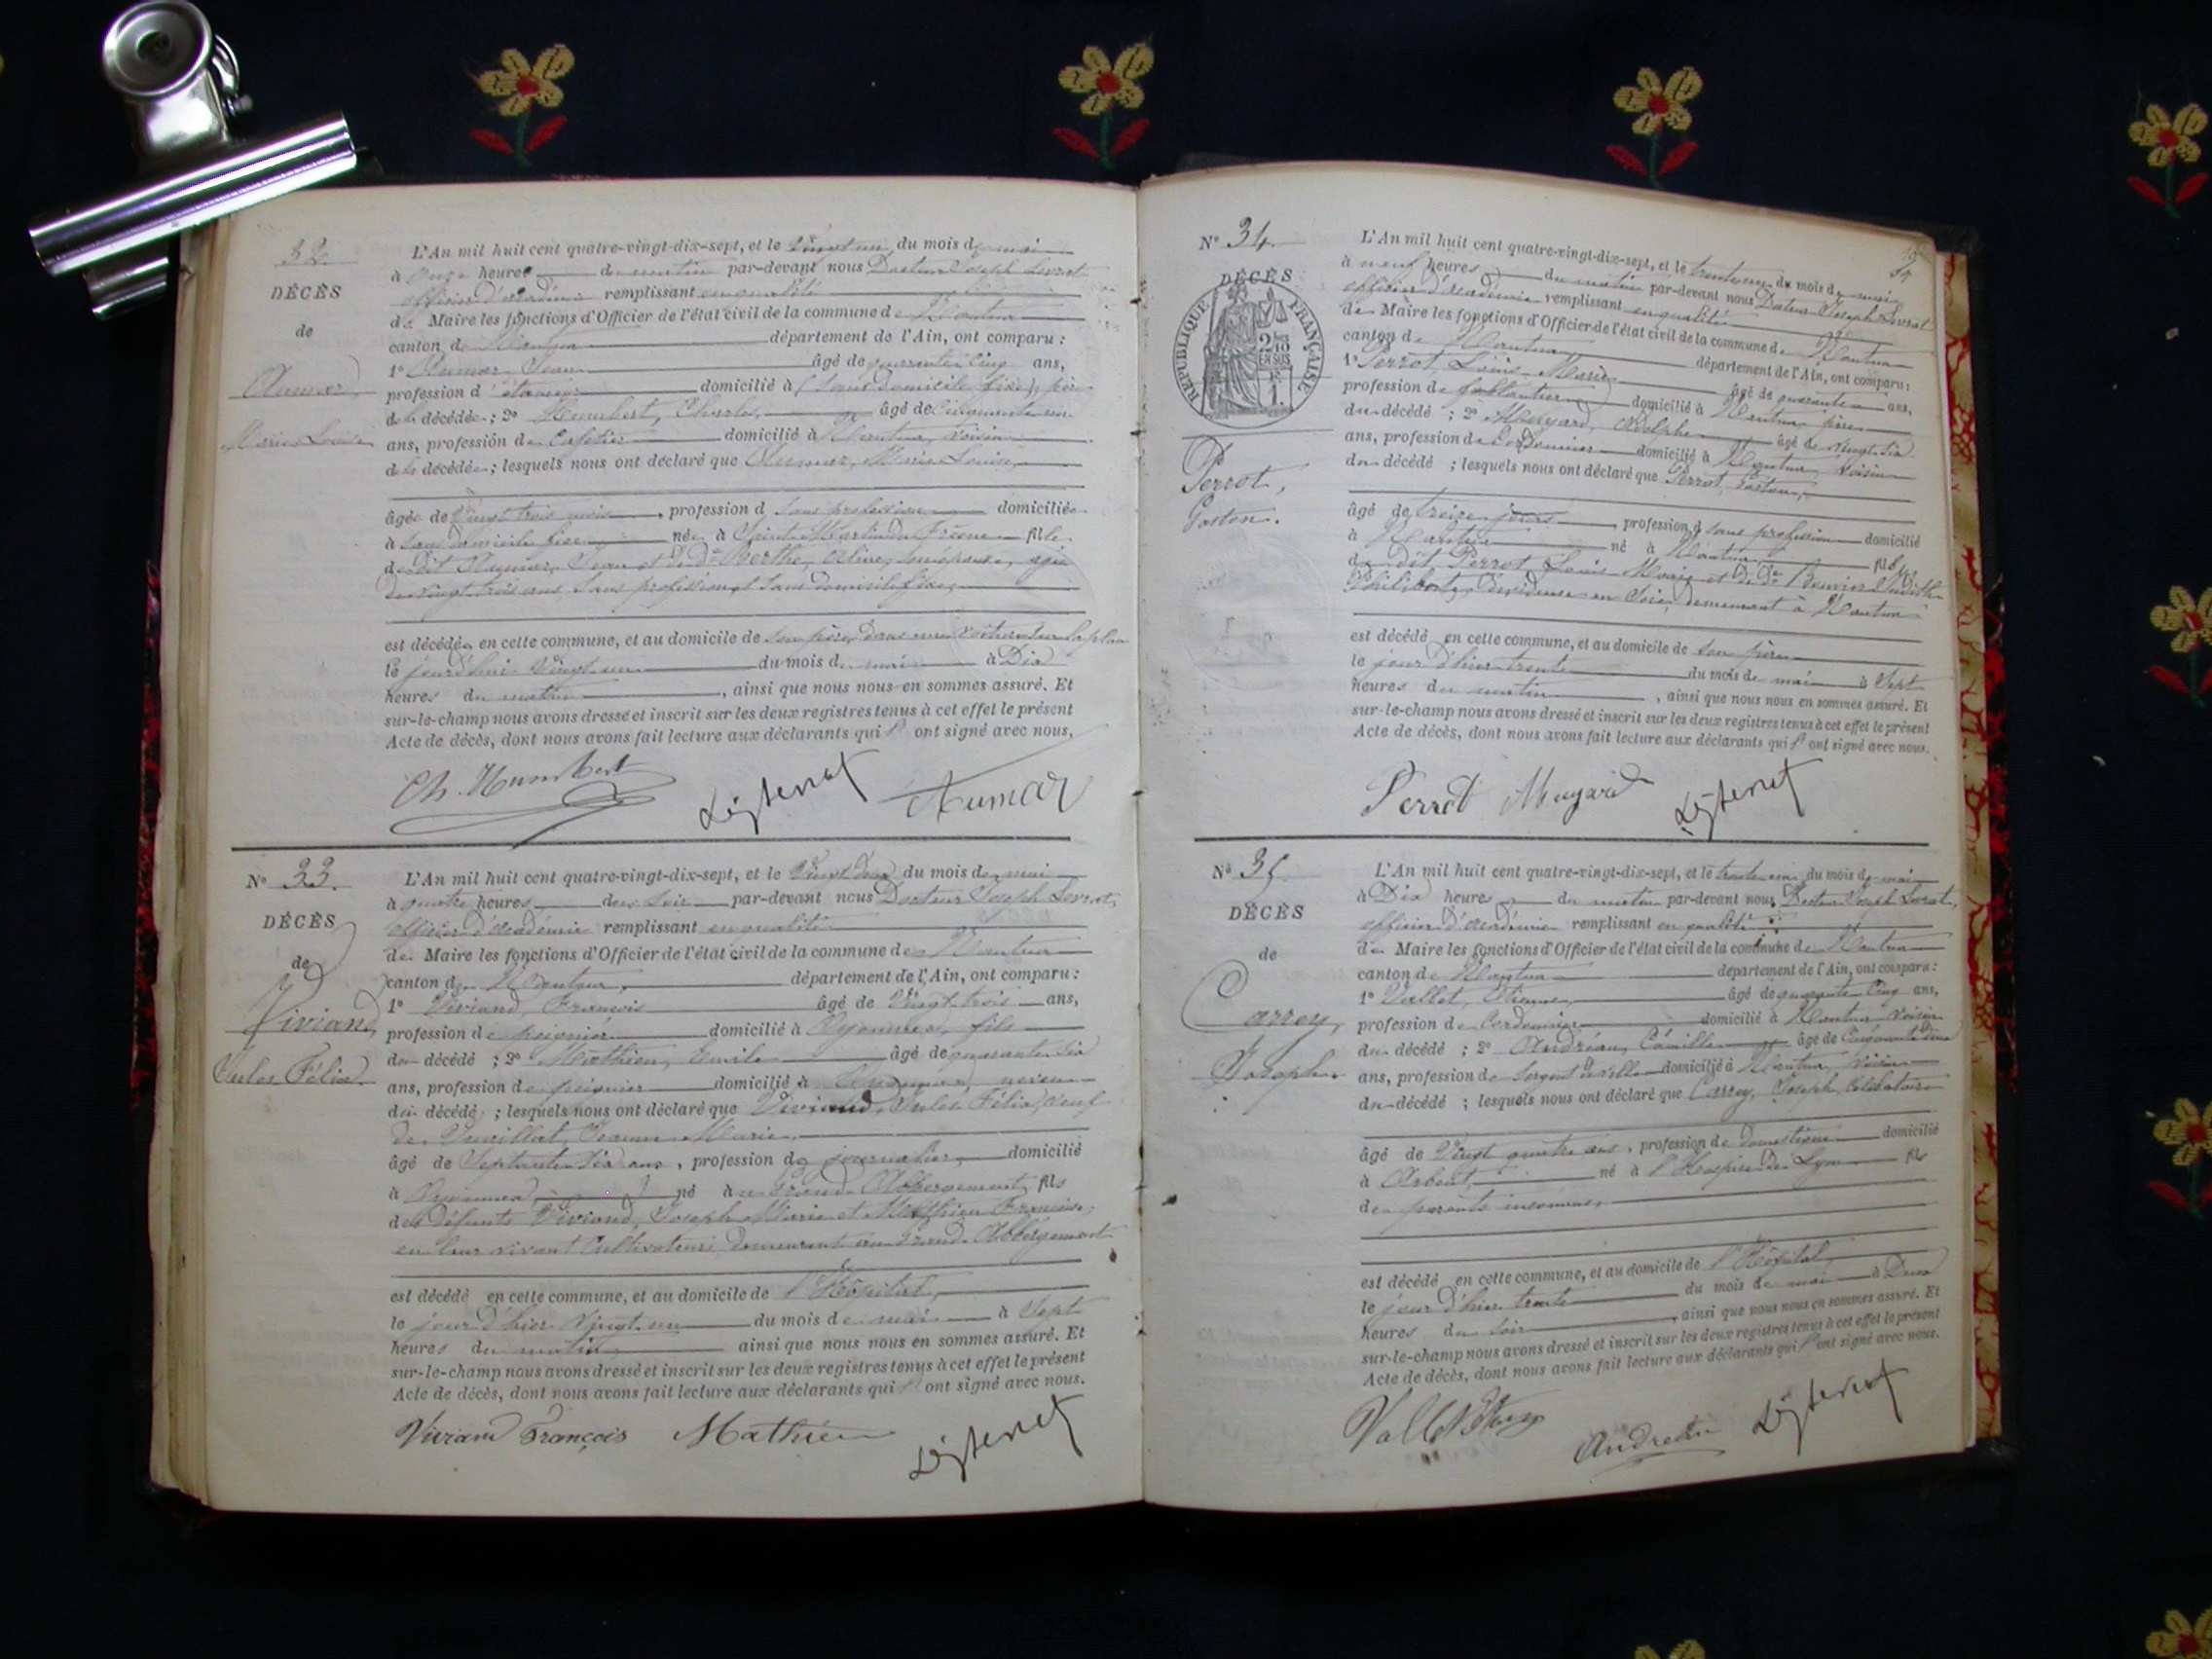 32.
DÉCÈS
de
Aumar,
Marie Louise
L'An mil huit cent quatre-vingt-dix-sept, et le vingt un du mois de mai
à onze heures du matin par-devant nous Docteur Joseph
officier d'académie remplissant en qualité
de Maire les fonctions d'Officier de l'état civil de la commune de Nantua
canton de Nantua département de l'Ain, ont comparu :
1° Aumar Jean âgé de quarante cinq ans,
profession d'étameur domicilié à (sans domicile fixe), père
de la décédée ; 2° Humbert, Charles, âgé de cinquante un
ans, profession de Cafetier domicilié à Nantua, voisin
de la décédée ; lesquels nous ont déclaré que Aumar, Marie Louise,
âgée de vingt trois mois, profession d sans profession domiciliée
à sans domicile fixe née à Saint Martin du Fresne fille
de dit Aumar, Jean et de de Berthe, Aline, son épouse, âgée
de vingt trois ans, sans profession et sans domicile fixe,
est décédée en cette commune, et au domicile de son père, dans une voiture sur la place
le jourd'hui vingt un du mois de mai à Dix
heures du matin, ainsi que nous nous en sommes assuré. Et
sur-le-champ nous avons dressé et inscrit sur les deux registres tenus à cet effet le présent
Acte de décès, dont nous avons fait lecture aux déclarants qui ont signé avec nous.
Ch. Humbert Aumar
N° 33.
DÉCÈS
de
Viviand,
Jules Félix.
L'An mil huit cent quatre-vingt-dix-sept, et le vingt deux du mois de mai
à quatre heures du soir par-devant nous Docteur Joseph
officier d'académie remplissant en qualité
de Maire les fonctions d'Officier de l'état civil de la commune de Nantua
canton de Nantua, département de l'Ain, ont comparu :
1° Viviand, François âgé de vingt trois ans,
profession de peignier domicilié à Oyonnax, fils
du décédé ; 2° Mathieu, Emile âgé de quarante six
ans, profession de peignier domicilié à Oyonnax, neveu
du décédé ; lesquels nous ont déclaré que Viviand, Jules Félix, veuf
de Vuaillat, Jeanne Marie,
âgé de septante six ans, profession de journalier, domicilié
à Oyonnax, né à au Grand-Abbergement, fils
de défunts Viviand, Joseph Marie et Mathieu Françoise,
en leur vivant Cultivateurs demeurant au Grand-Abbergement
est décédé en cette commune, et au domicile de l'Hôpital,
le jour d'hier vingt un du mois de mai à Sept
heures du matin ainsi que nous nous en sommes assuré. Et
sur-le-champ nous avons dressé et inscrit sur les deux registres tenus à cet effet le présent
Acte de décès, dont nous avons fait lecture aux déclarants qui ont signé avec nous.
Viviand François Mathieu
N° 34.
DÉCÈS
RÉPUBLIQUE FRANÇAISE
2/10 EN SUS
Perrot,
Gaston.
L'An mil huit cent quatre-vingt-dix-sept, et le trente un du mois de mai
à neuf heures du matin par-devant nous Docteur Joseph
officier d'académie remplissant en qualité
de Maire les fonctions d'Officier de l'état civil de la commune de Nantua
canton de Nantua département de l'Ain, ont comparu :
1° Perrot, Louis Marie âgé de quarante ans,
profession de ferblantier domicilié à Nantua, père
du décédé ; 2° Adolphe âgé de vingt six
ans, profession de Cordonnier domicilié à Nantua, voisin
du décédé ; lesquels nous ont déclaré que Perrot, Gaston,
âgé de treize jours, profession d sans profession domicilié
à Nantua né à Nantua fils
de dit Perrot, Louis Marie et de de
Philiberte, dévideuse en soie, demeurant à Nantua
est décédé en cette commune, et au domicile de son père
le jour d'hier trente du mois de mai à Sept
heures du matin, ainsi que nous nous en sommes assuré. Et
sur-le-champ nous avons dressé et inscrit sur les deux registres tenus à cet effet le présent
Acte de décès, dont nous avons fait lecture aux déclarants qui ont signé avec nous.
Perrot
N° 35.
DÉCÈS
de
Carrey,
Joseph
L'An mil huit cent quatre-vingt-dix-sept, et le trente un du mois de mai
à Dix heures du matin par-devant nous Docteur Joseph
officier d'académie remplissant en qualité
de Maire les fonctions d'Officier de l'état civil de la commune de Nantua
canton de Nantua département de l'Ain, ont comparu :
1° Vallet, Etienne, âgé de quarante cinq ans,
profession de Cordonnier domicilié à Nantua voisin
du décédé ; 2° Camille âgé de cinquante deux
ans, profession de sergent de ville domicilié à Nantua, voisin
du décédé ; lesquels nous ont déclaré que Carrey, Joseph, Célibataire
âgé de vingt quatre ans, profession de domestique domicilié
à Arbent, né à l'Hospice de Lyon fils
de parents inconnus,
est décédé en cette commune, et au domicile de l'Hôpital,
le jour d'hier trente du mois de mai à Deux
heures du soir, ainsi que nous nous en sommes assuré. Et
sur-le-champ nous avons dressé et inscrit sur les deux registres tenus à cet effet le présent
Acte de décès, dont nous avons fait lecture aux déclarants qui ont signé avec nous.